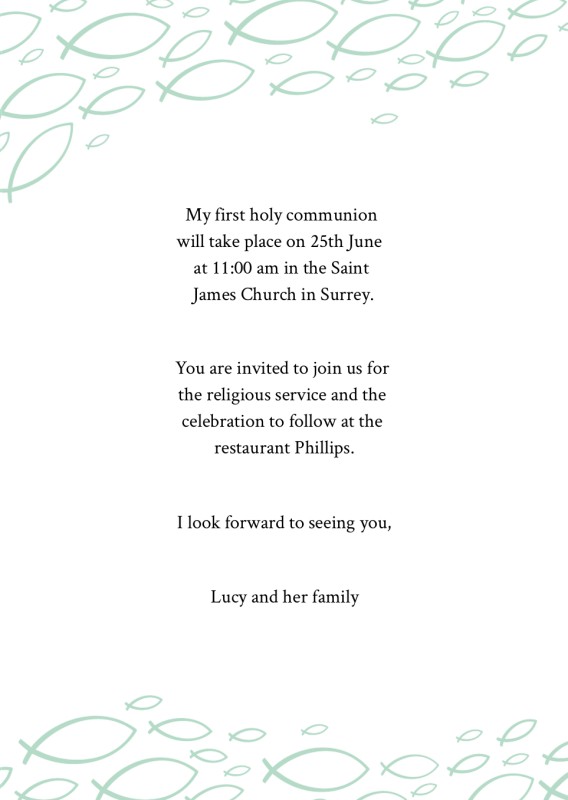 My first holy communion
will take place on 25th June
at 11:00 am in the Saint
James Church in Surrey.
You are invited to join us for
the religious service and the
celebration to follow at the
restaurant Phillips.
I look forward to seeing you,
Lucy and her family